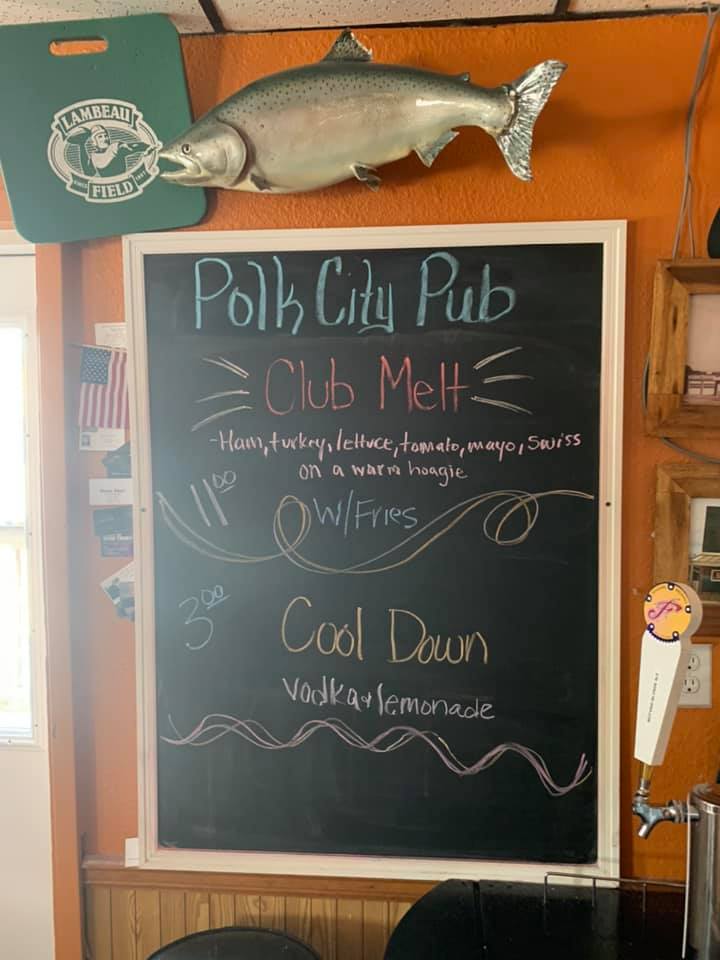 LAMBEAU
FIELD
Polk City Pub
Club Melt
-Ham, turkey, lettuce, tomato, mayo, Swiss
on a warm hoagie
11.00
W/Fries
3.00
Cool Down
Vodka & lemonade